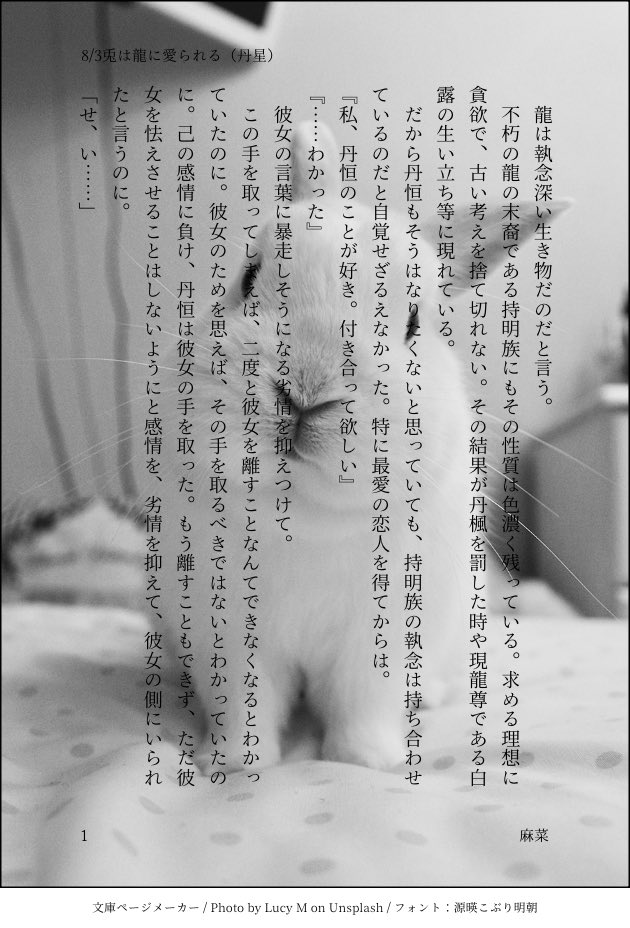 8/3兎は龍に愛られる（丹星）
龍は執念深い生き物だのだと言う。
不朽の龍の末裔である持明族にもその性質は色濃く残っている。求める理想に
貪欲で、古い考えを捨て切れない。その結果が丹楓を罰した時や現龍尊である白
露の生い立ち等に現れている。
だから丹恒もそうはなりたくないと思っていても、持明族の執念は持ち合わせ
ているのだと自覚せざるえなかった。特に最愛の恋人を得てからは。
『私、丹恒のことが好き。付き合って欲しい』
『……わかった』
彼女の言葉に暴走しそうになる劣情を抑えつけて。
この手を取ってしまえば、二度と彼女を離すことなんてできなくなるとわかっ
ていたのに。彼女のためを思えば、その手を取るべきではないとわかっていたの
に。己の感情に負け、丹恒は彼女の手を取った。もう離すこともできず、ただ彼
女を怯えさせることはしないようにと感情を、劣情を抑えて、彼女の側にいられ
たと言うのに。
「せ、い……」
1
麻菜
文庫ページメーカー / Photo by Lucy M on Unsplash / フォント：源暎こぶり明朝